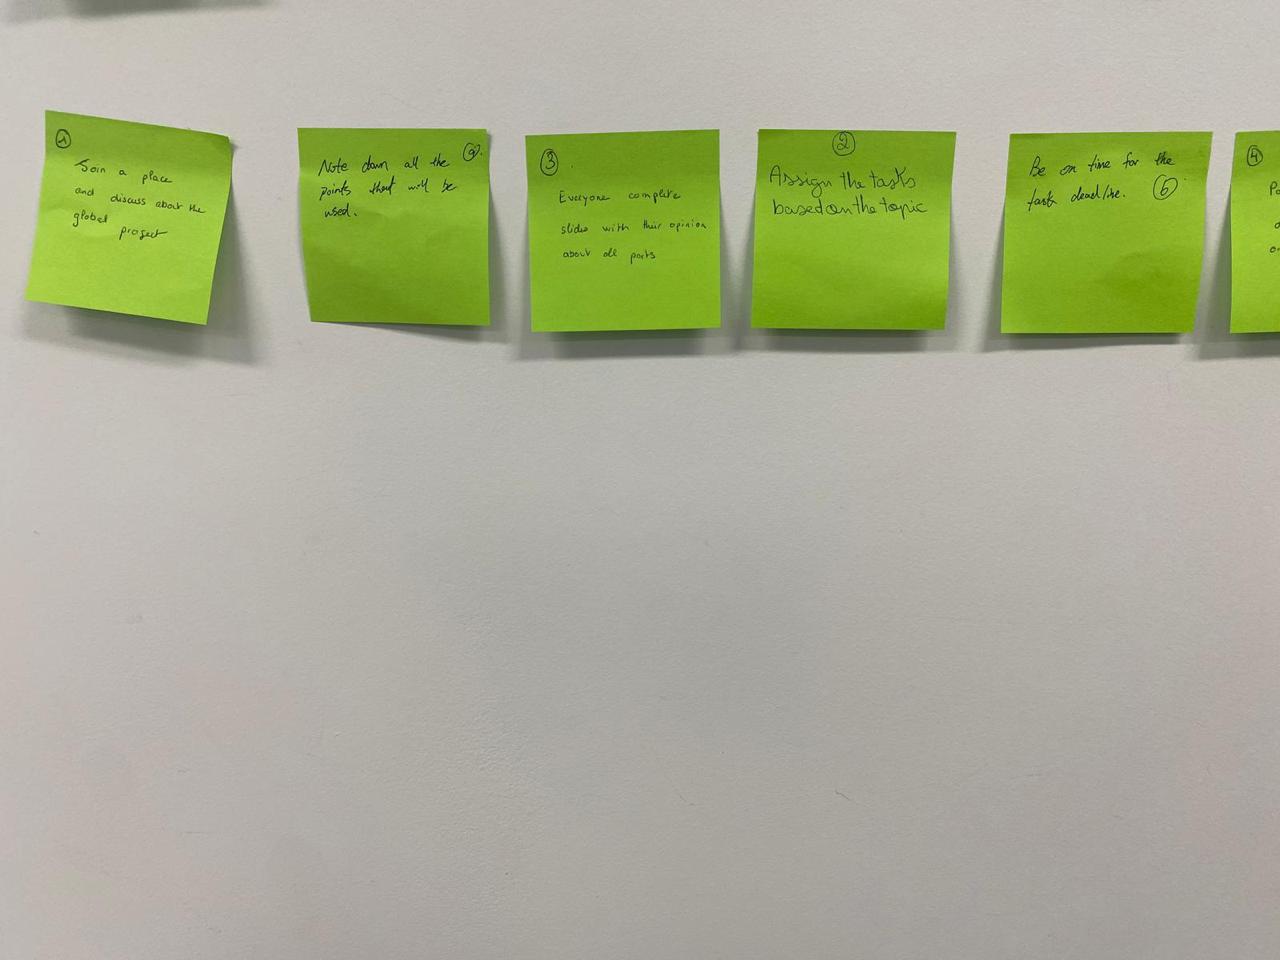 1
Join a place
and discuss about the
global project
Note down all the
points that will be
used.
3
Everyone complete
slides with their opinion
about all parts
2
Assign the tasks
based on the topic
Be on time for the
task deadline. 6
4